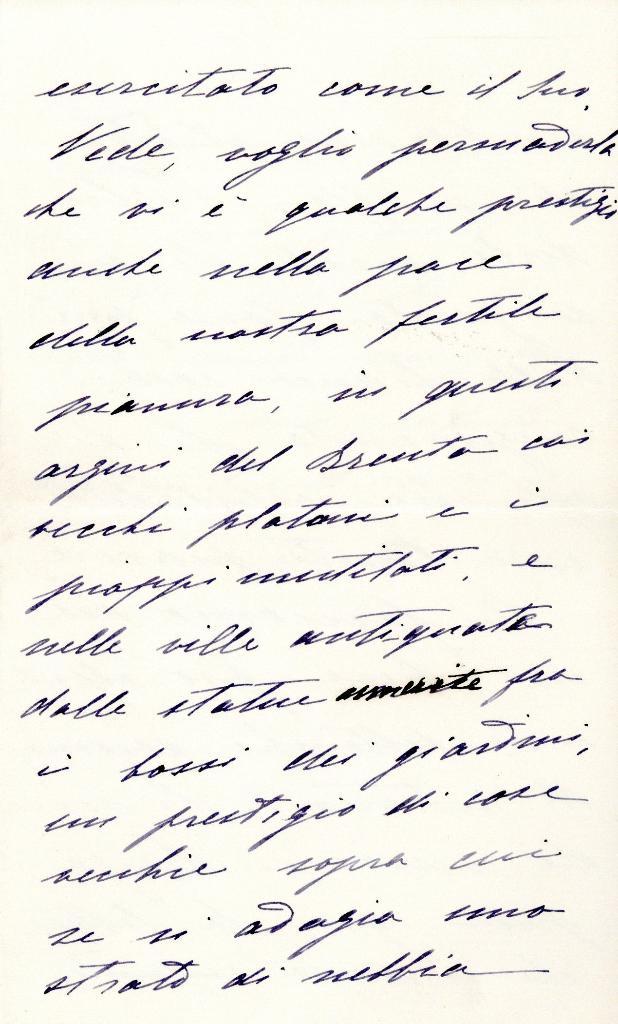 esercitato come il Suo.
Vede, voglio persuaderla
che vi è qualche prestigio
anche nella pace
della nostra fertile
pianura, in questi
argini del Brenta coi
vecchi platani e i
pioppi mutilati, e
nelle ville antiquate
dalle statue annerite fra
i bossi dei giardini,
un prestigio di cose
vecchie sopra cui
se si adagia uno
strato di nebbia